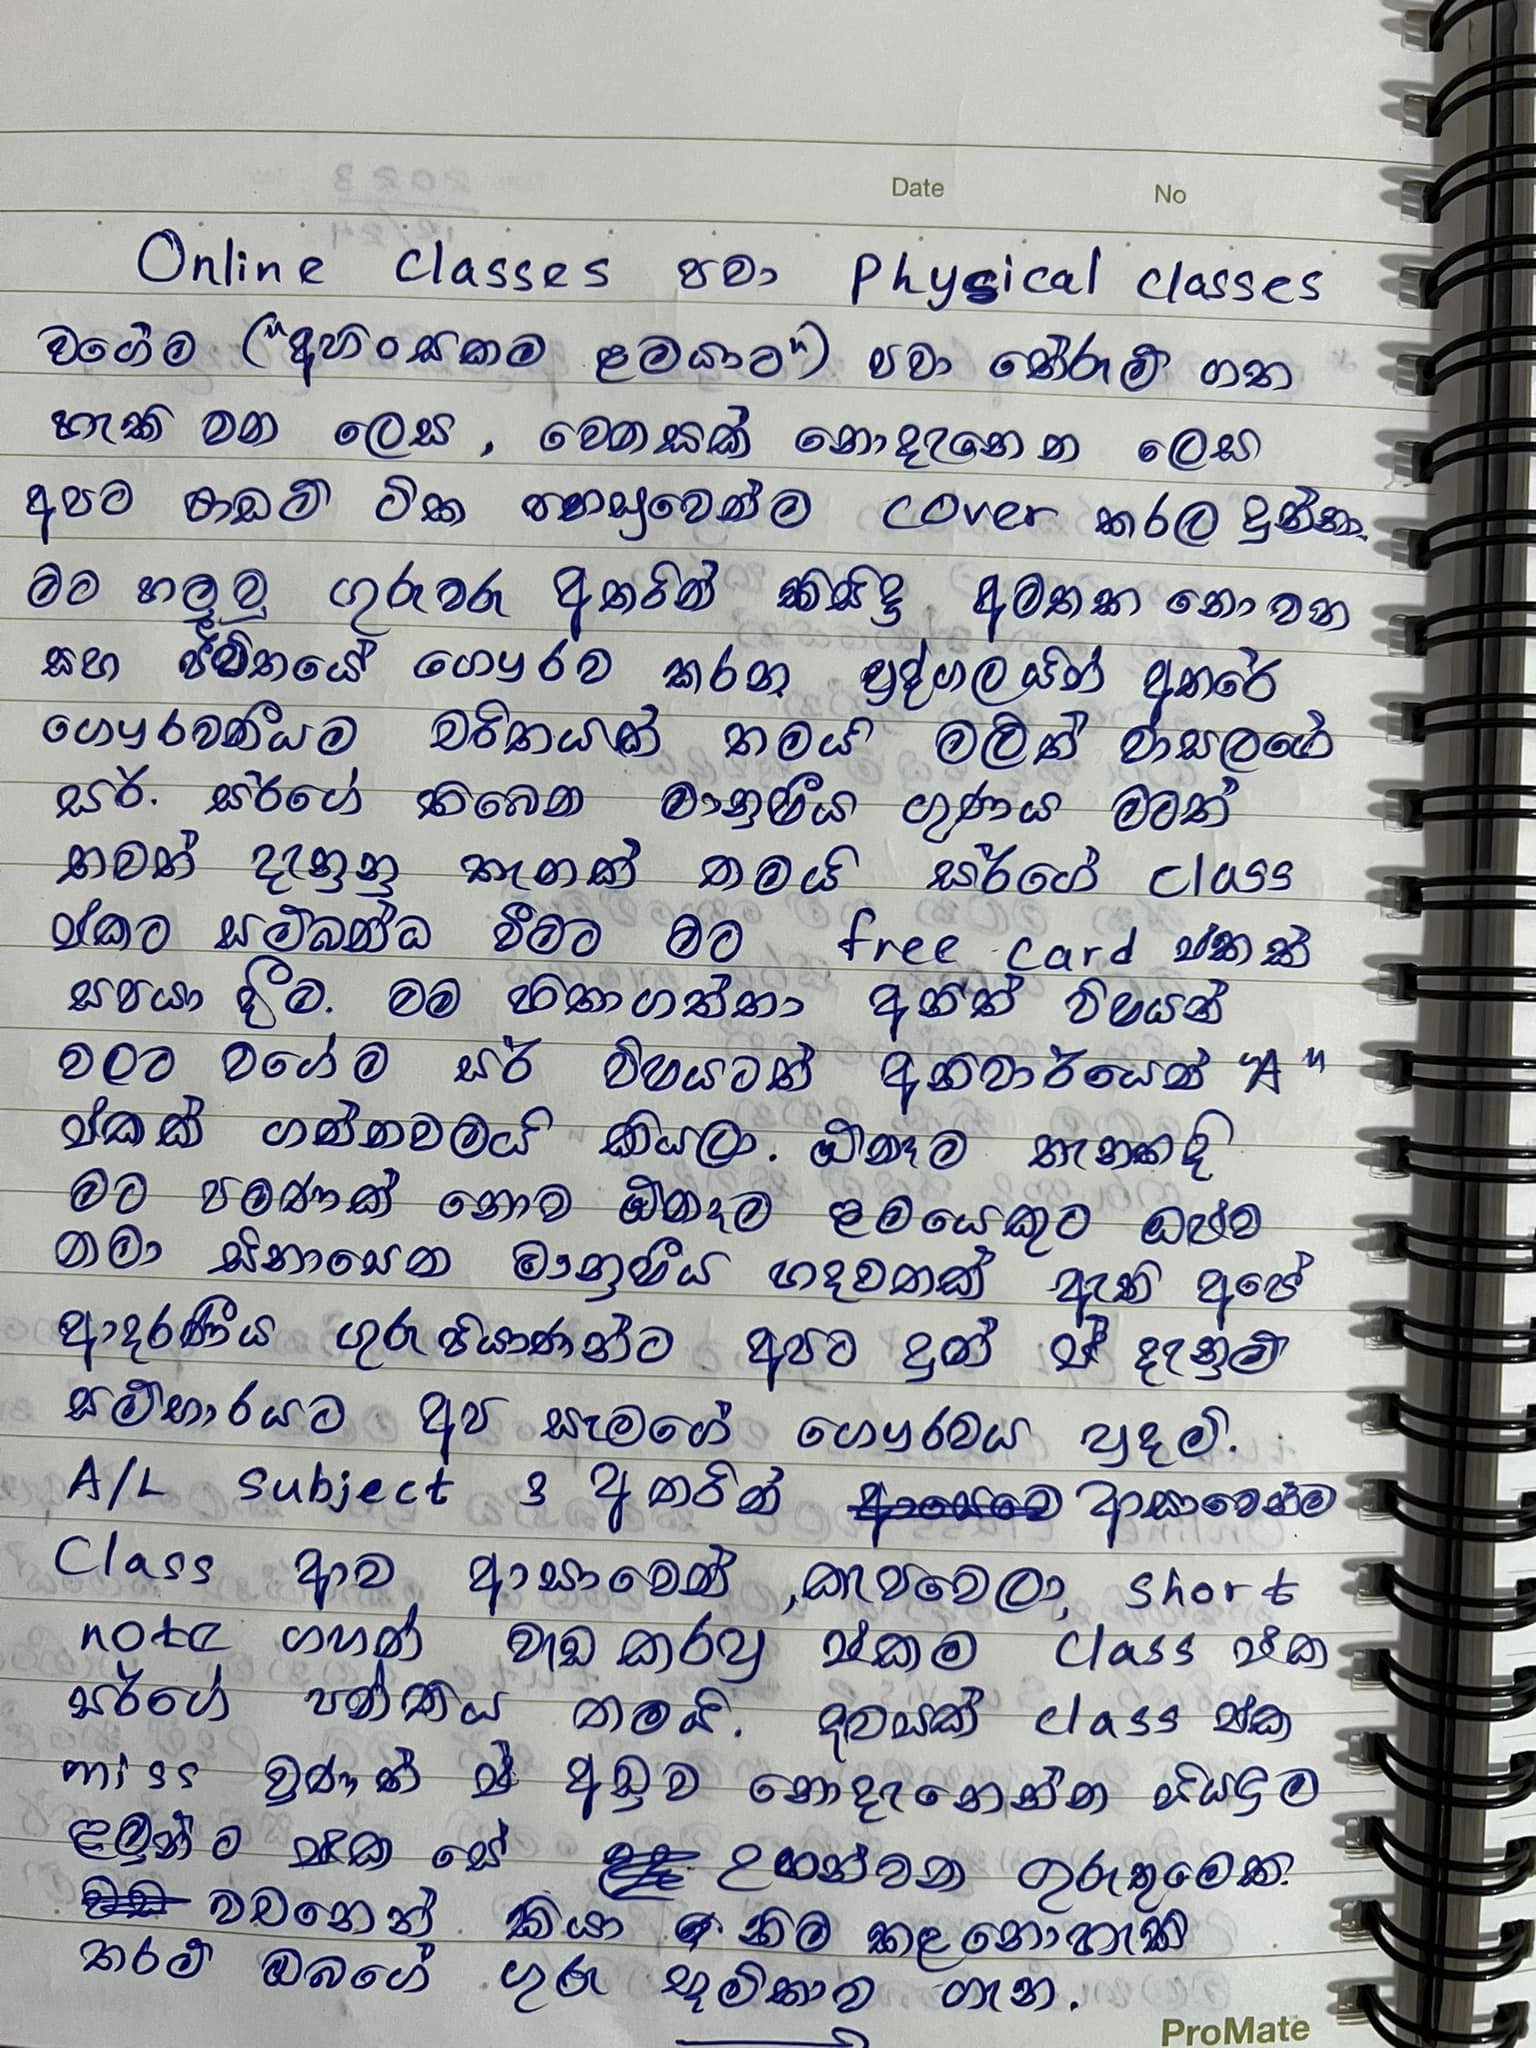 Date No
Online classes පවා physical classes
වගේම ("අහිංසකම ළමයාට") පවා තේරුම් ගත
හැකි වන ලෙස, වෙනසක් නොදැනෙන ලෙස
අපට පාඩම් ටික පහසුවෙන්ම cover කරල දුන්නා.
මට හමු වු ගුරුවරු අතරින් කිසිදු අමතක නොවන
සහ ජීවිතයේ ගෞරව කරන පුද්ගලයින් අතරේ
ගෞරවණීයම චරිතයක් තමයි මලිත් වාසලගේ
සර්. සර්ගේ තිබෙන මානුෂීය ගුණය මටත්
තවත් දැනුනු තැනක් තමයි සර්ගේ class
එකට සම්බන්ධ වීමට මට free card එකක්
සපයා දීම. මම හිතාගත්තා අනිත් විෂයන්
වලට වගේම සර් විෂයටත් අනිවාර්යෙන් "A"
එකක් ගන්නවමයි කියලා. ඕනෑම තැනකදි
මට පමණක් නොව ඕනෑම ළමයෙකුට ඔළුව
නමා සිනාසෙන මානුෂීය හදවතක් ඇති අපේ
ආදරණීය ගුරුපියාණන්ට අපට දුන් ඒ දැනුම්
සම්භාරයට අප සැමගේ ගෞරවය පුදමි.
A/L subject 3 අතරින් ආසාවෙන්ම
Class ආව ආසාවෙන්, කැපවෙලා, short
note ගහන් වැඩ කරපු එකම class එක
සර්ගේ පන්තිය තමයි. දවසක් class එක
miss වුණත් ඒ අඩුව නොදැනෙන්න සියලුම
ළමුන්ම එක සේ උගන්වන ගුරුතුමෙක.
වචනෙන් කියා නිම කළ නොහැකි
තරම් ඔබගේ ගුරු භූමිකාව ගැන.
ProMate